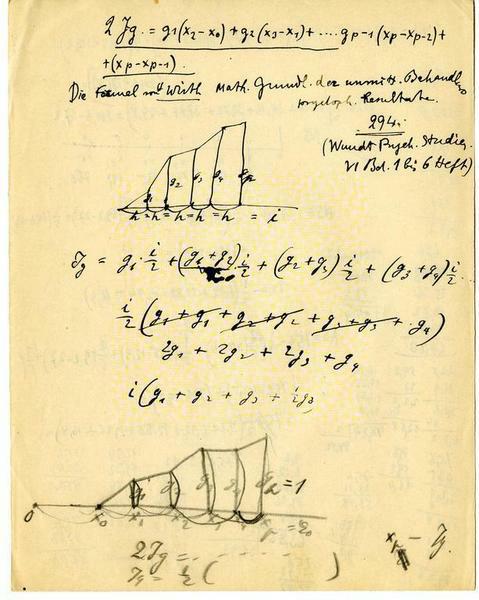 2 Jg. = g1(x2-x0)+g2(x3-x1)+....gp-1(xp-xp-2)+
+(xp-xp-1).
Die Formel von Wirth Math. Grundl. der unmitt. Behandl.
Resultate.
294.
(Wundt Psych. Studien
VI Bd. 1 bis 6 Heft)
g1 g2 g3 g4
h=h=h=h=h = i
Jg = g1·i/2 + (g1+g2)i/2 + (g2+g3)i/2 + (g3+g4)i/2.
i/2(g1+g1+g2+g2+g3+g3+g4)
2g1 + 2g2 + 2g3 + g4
i(g1+g2+g3+
g1 g2 g3 =1
0 x0 x1 x2 x3
2Jg = - - - - - -
Jg = 1/2 ( )
- Jg.